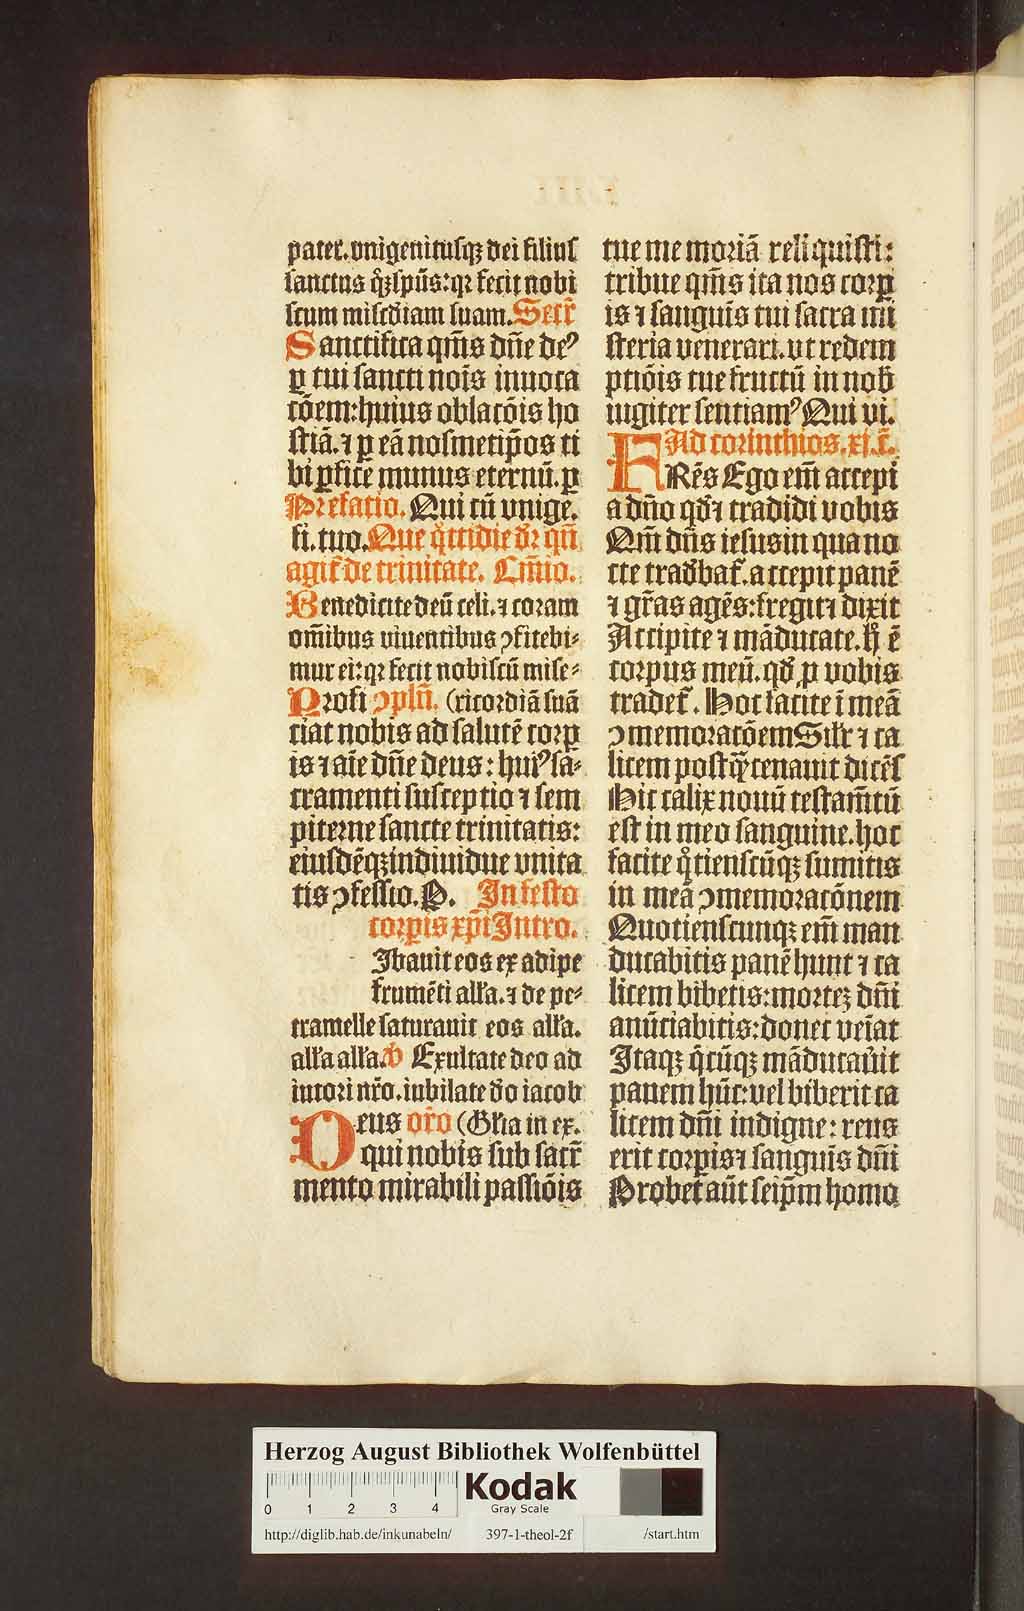 pater. vnigenitusqꝫ dei filius
sanctus qꝫ spūs: qꝛ fecit nobi
scum misc̄diam suam. Secr̄
Sanctifica qm̄s dn̄e deꝰ
ꝑ tui sancti nois̄ inuoca
cōem: huius oblacōis ho
stiā. ⁊ ꝑ eā nosmetip̄os ti
bi ꝑfice munus eternū. ꝑ
Prefatio. Qui cū vnige.
fi. tuo. Que q̊ttidie dr̄ qn̄
agit̄ de trinitate. Cm̄io.
Benedicite deū celi. ⁊ coram
om̄ibus viuentibus ꝯfitebi⸗
mur ei: qꝛ fecit nobiscū mise⸗
Profi ꝯpln̄. (ricordiā suā
ciat nobis ad salutē corꝑ
is ⁊ aīe dn̄e deus: huiꝰ sā⸗
cramenti susceptio ⁊ sem
piterne sancte trinitatis:
eiusdēqꝫ indiuidue vnita
tis ꝯfessio. P. In festo
corꝑis xp̄i Intro.
Ibauit eos ex adipe
frumēti all'a. ⁊ de pe⸗
tra melle saturauit eos all'a.
all'a all'a. V Exultate deo ad
iutori nr̄o. iubilate do iacob
Deus or̄o (Gl'ia in ex.
qui nobis sub sacr̄
mento mirabili passiōis
tue me moriā reliquisti:
tribue qm̄s ita nos corꝑ
is ⁊ sanguīs tui sacra mi
steria venerari. vt redem
ptiōis tue fructū in nob̄
iugiter sentiamꝰ Qui vi.
Ad corinthios. xj. c̄.
FRēs Ego em̄ accepi
a dn̄o qd̄ ⁊ tradidi vobis
Qm̄ dn̄s iesus in qua no
cte tradbat̄. accepit panē
⁊ gr̄as agēs: fregit ⁊ dixit
Accipite ⁊ māducate. h̊ ē
corpus meū. qd̄ ꝓ vobis
tradet̄. Hoc facite ī meā
ꝯmemoracōem Silr̄ ⁊ ca
licem postq̄ cenauit dicēs
Hic calix nouū testam̄tū
est in meo sanguine. hoc
facite q̊tienscūqꝫ sumitis
in meā ꝯmemoracōnem
Quotienscunqꝫ em̄ man
ducabitis panē hunc ⁊ ca
licem bibetis: mortēꝫ dn̄i
anūciabitis: donec veīat
Itaqꝫ q̊cūqꝫ māducauīt
panem hūc: vel biberit ca
licem dn̄i indigne: reus
erit corꝑis ⁊ sanguīs dn̄i
Probet aūt seip̄m homo
Herzog August Bibliothek Wolfenbüttel
0 1 2 3 4
Kodak
Gray Scale
http://diglib.hab.de/inkunabeln/ 397-1-theol-2f /start.htm